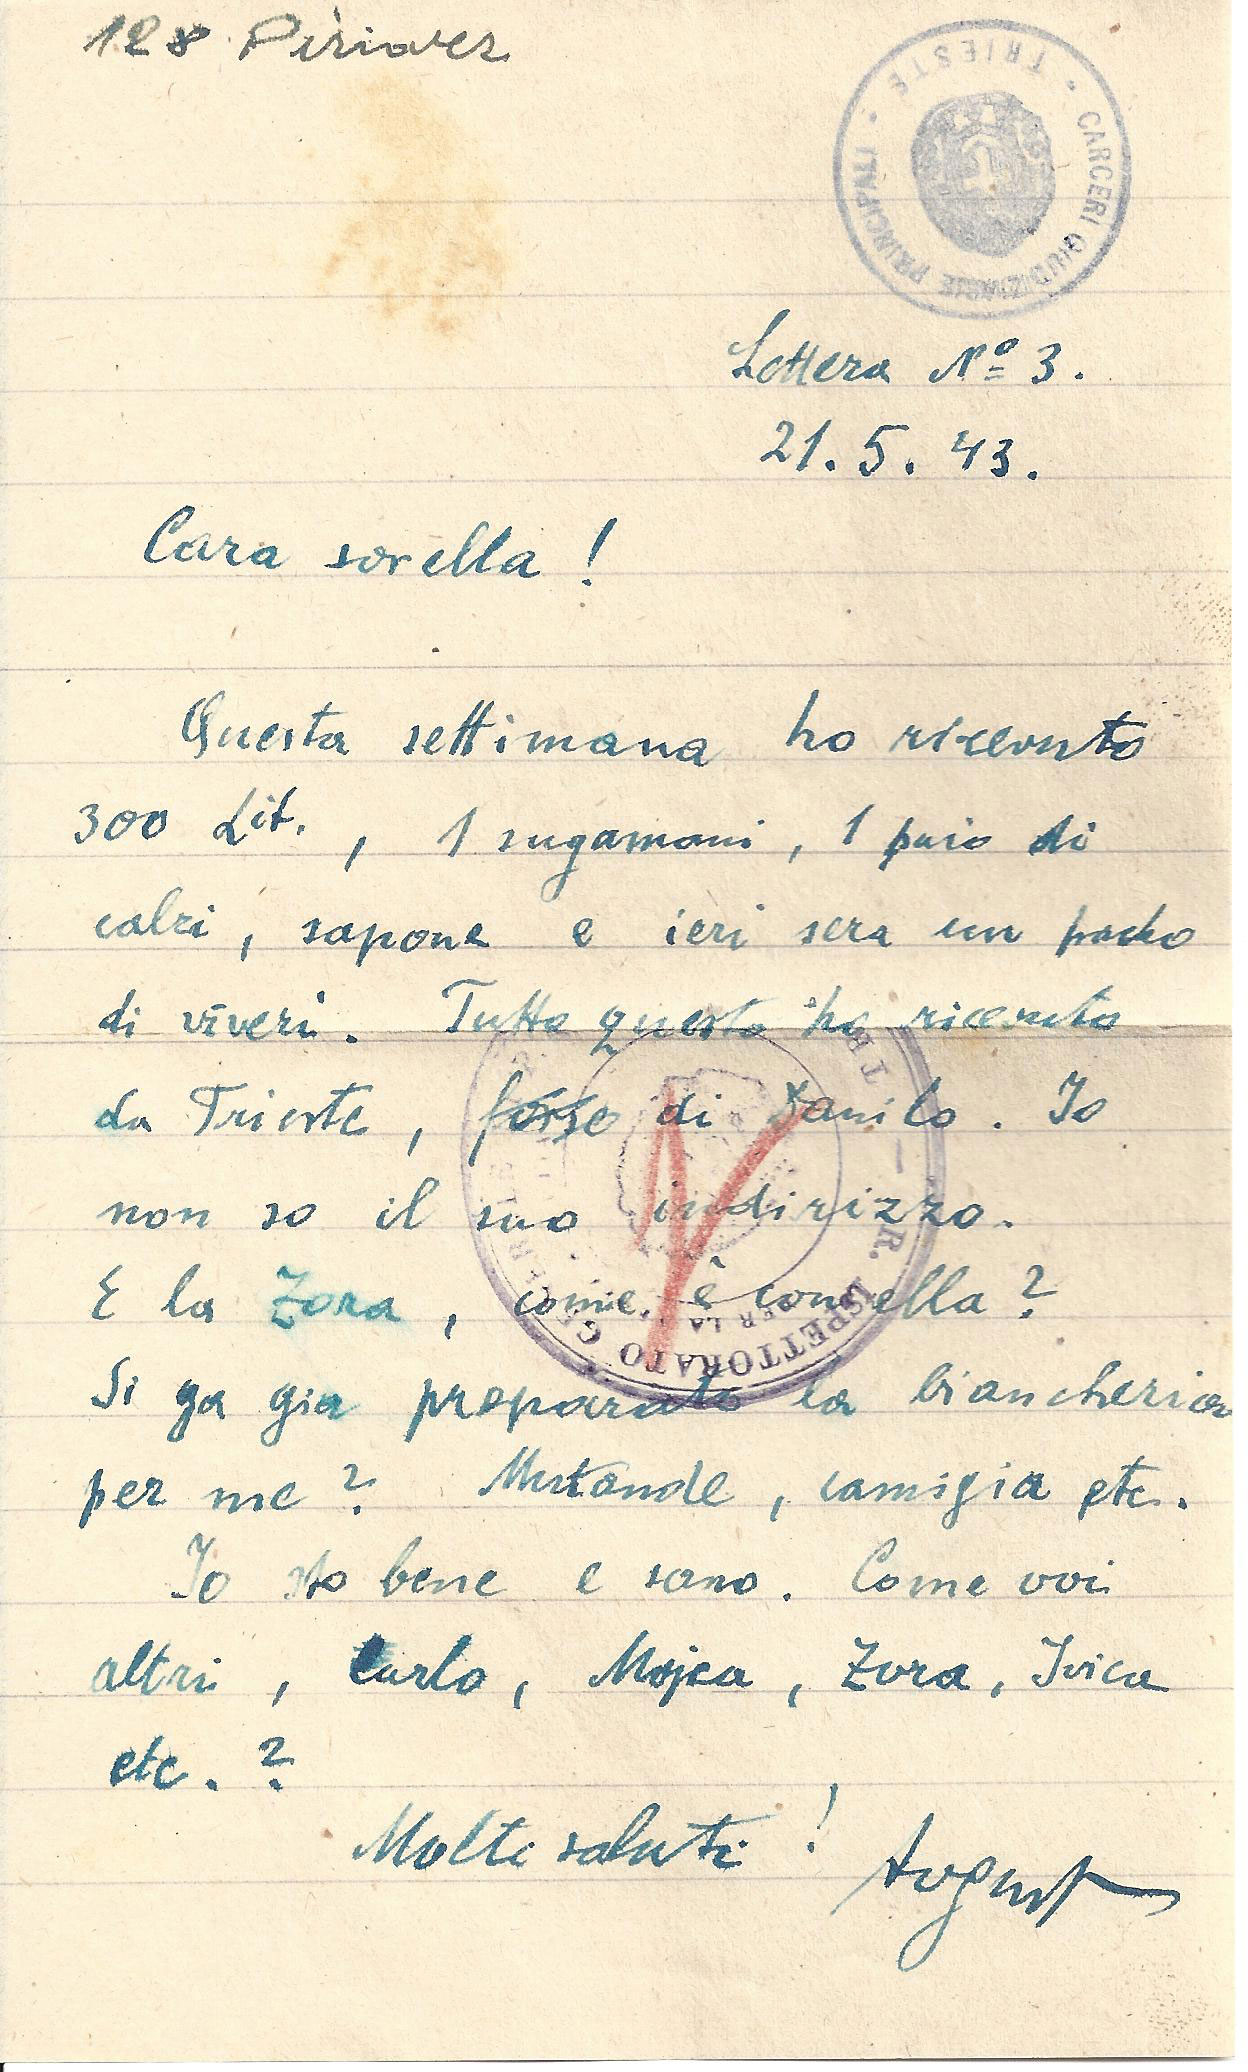 128 Pirjavez
CARCERI GIUDIZIARIE PRINCIPALI • TRIESTE •
Lettera Nº 3.
21. 5. 43.
Cara sorella!
Questa settimana ho ricevuto
300 Lit., 1 sugamani, 1 paio di
calzi, sapone e ieri sera un pacho
di viveri. Tutto questo ho ricevuto
da Trieste, forse di Danilo. Io
non so il suo indirizzo.
E la Zora, come è con ella?
Si ga gia preparato la biancheria
per me? Mutande, camigia etc.
Io sto bene e sano. Come voi
altri, Carlo, Mojca, Zora, Ivica
etc.?
Molti saluti! August
R. ISPETTORATO GENERALE
PER LA